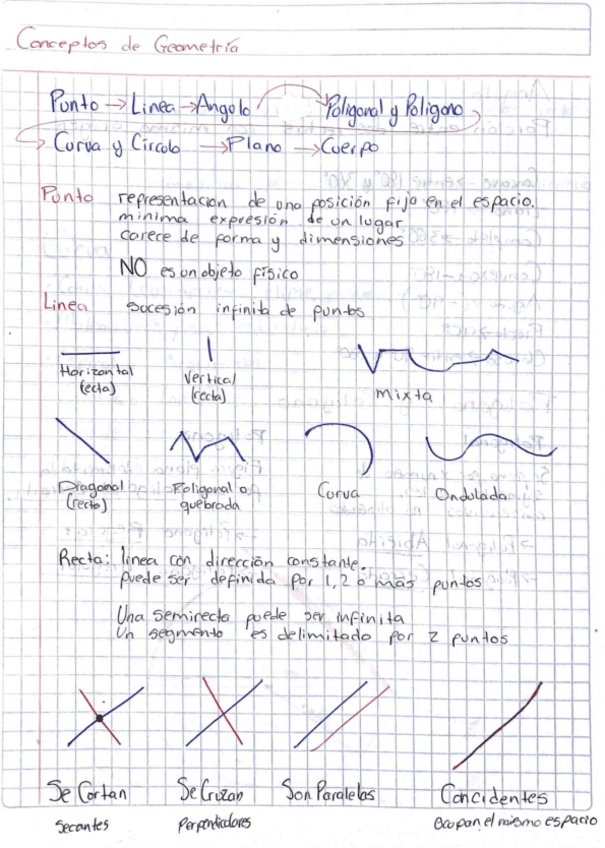 Conceptos de Geometría
Punto → Linea → Angolo → Poligonal y Poligono
→ Curva y Circolo → Plano → Cuerpo
Punto representacion de una posición fija en el espacio.
minima expresión de un lugar
carece de forma y dimensiones
NO es un objeto físico
Linea sucesión infinita de puntos
Horizontal
(recta)
Vertical
(recta)
mixta
Diagonal
(recto)
Poligonal o
quebrada
Curva
Ondulada
Recta: linea con dirección constante.
puede ser definida por 1, 2 o más puntos
Una semirecta puede ser infinita
Un segmento es delimitado por 2 puntos
Se Cortan
Secantes
Se Cruzan
Perpendicolares
Son Paralelas
Concidentes
Ocupan el mismo espacio